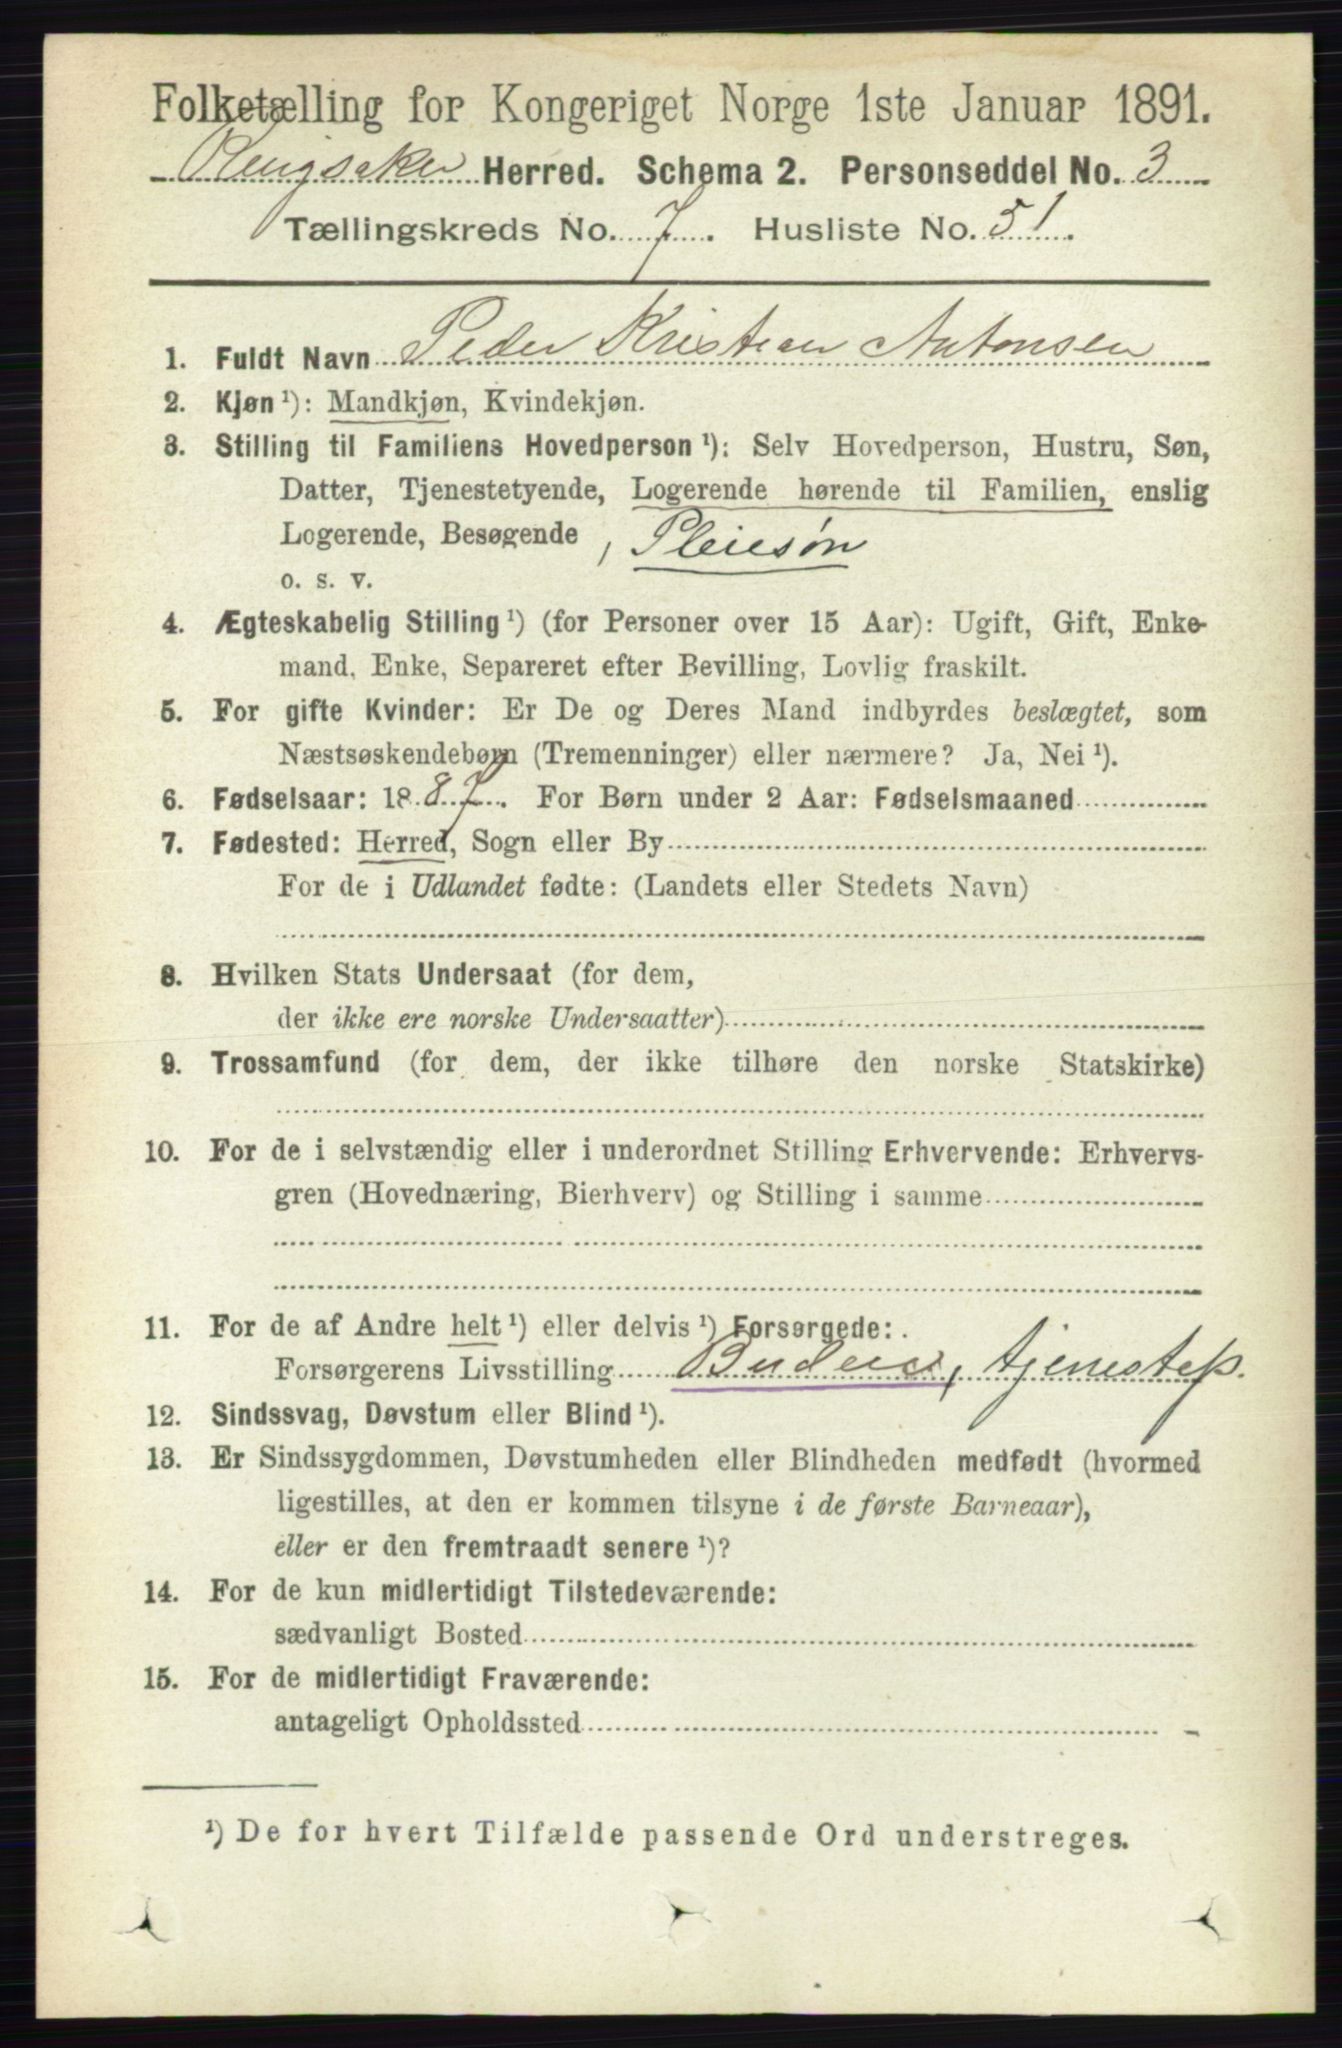 Folketælling for Kongeriget Norge 1ste Januar 1891.
Ringsaker Herred. Schema 2. Personseddel No. 3
Tællingskreds No. 7. Husliste No. 51.
1. Fuldt Navn Peder Kristian Antonsen
2. Kjøn ¹): Mandkjøn, Kvindekjøn.
3. Stilling til Familiens Hovedperson ¹): Selv Hovedperson, Hustru, Søn,
Datter, Tjenestetyende, Logerende hørende til Familien, enslig
Logerende, Besøgende , Pleiesøn
o. s. v.
4. Ægteskabelig Stilling ¹) (for Personer over 15 Aar): Ugift, Gift, Enke-
mand, Enke, Separeret efter Bevilling, Lovlig fraskilt.
5. For gifte Kvinder: Er De og Deres Mand indbyrdes beslægtet, som
Næstsøskendebørn (Tremenninger) eller nærmere? Ja, Nei ¹).
6. Fødselsaar: 1887. For Børn under 2 Aar: Fødselsmaaned
7. Fødested: Herred, Sogn eller By
For de i Udlandet fødte: (Landets eller Stedets Navn)
8. Hvilken Stats Undersaat (for dem,
der ikke ere norske Undersaatter)
9. Trossamfund (for dem, der ikke tilhøre den norske Statskirke)
10. For de i selvstændig eller i underordnet Stilling Erhvervende: Erhvervs-
gren (Hovednæring, Bierhverv) og Stilling i samme
11. For de af Andre helt ¹) eller delvis ¹) Forsørgede:
Forsørgerens Livsstilling Budeie, tjenestep.
12. Sindssvag, Døvstum eller Blind ¹).
13. Er Sindssygdommen, Døvstumheden eller Blindheden medfødt (hvormed
ligestilles, at den er kommen tilsyne i de første Barneaar),
eller er den fremtraadt senere ¹)?
14. For de kun midlertidigt Tilstedeværende:
sædvanligt Bosted
15. For de midlertidigt Fraværende:
antageligt Opholdssted
¹) De for hvert Tilfælde passende Ord understreges.